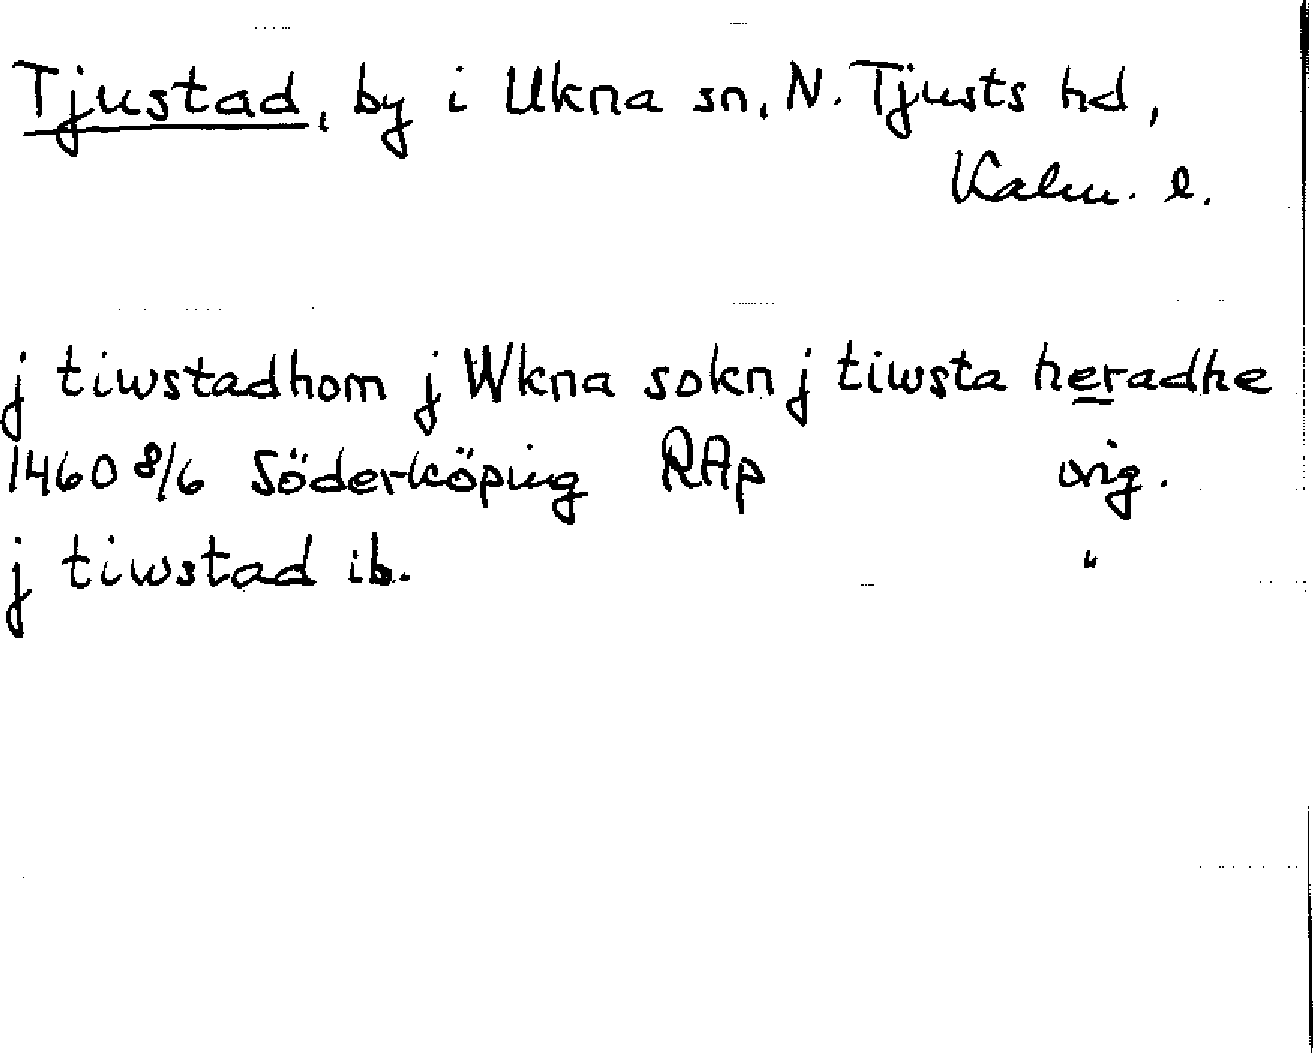 Tjustad, by i Ukna sn, N. Tjusts hd,
Kalm. l.
j tiwstadhom j Wkna sokn j tiwsta heradhe
1460 8/6 Söderköping RAp orig.
j tiwstad ib. "